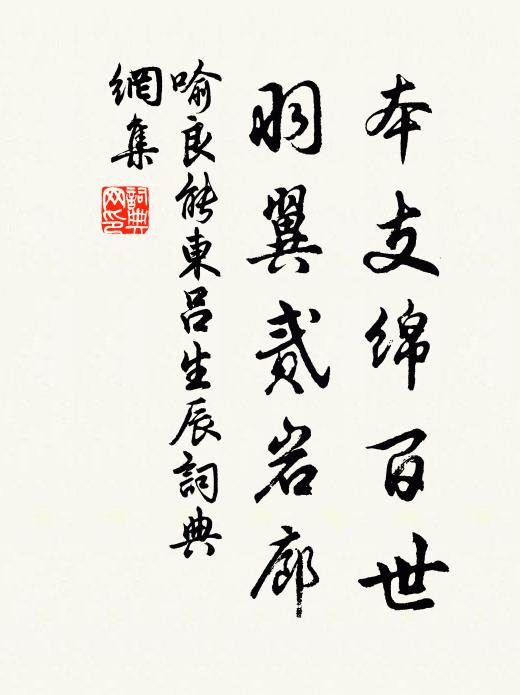 本支綿百世
羽翼貳岩廊
喻良能東呂生辰詞典
網集
詞典
网印